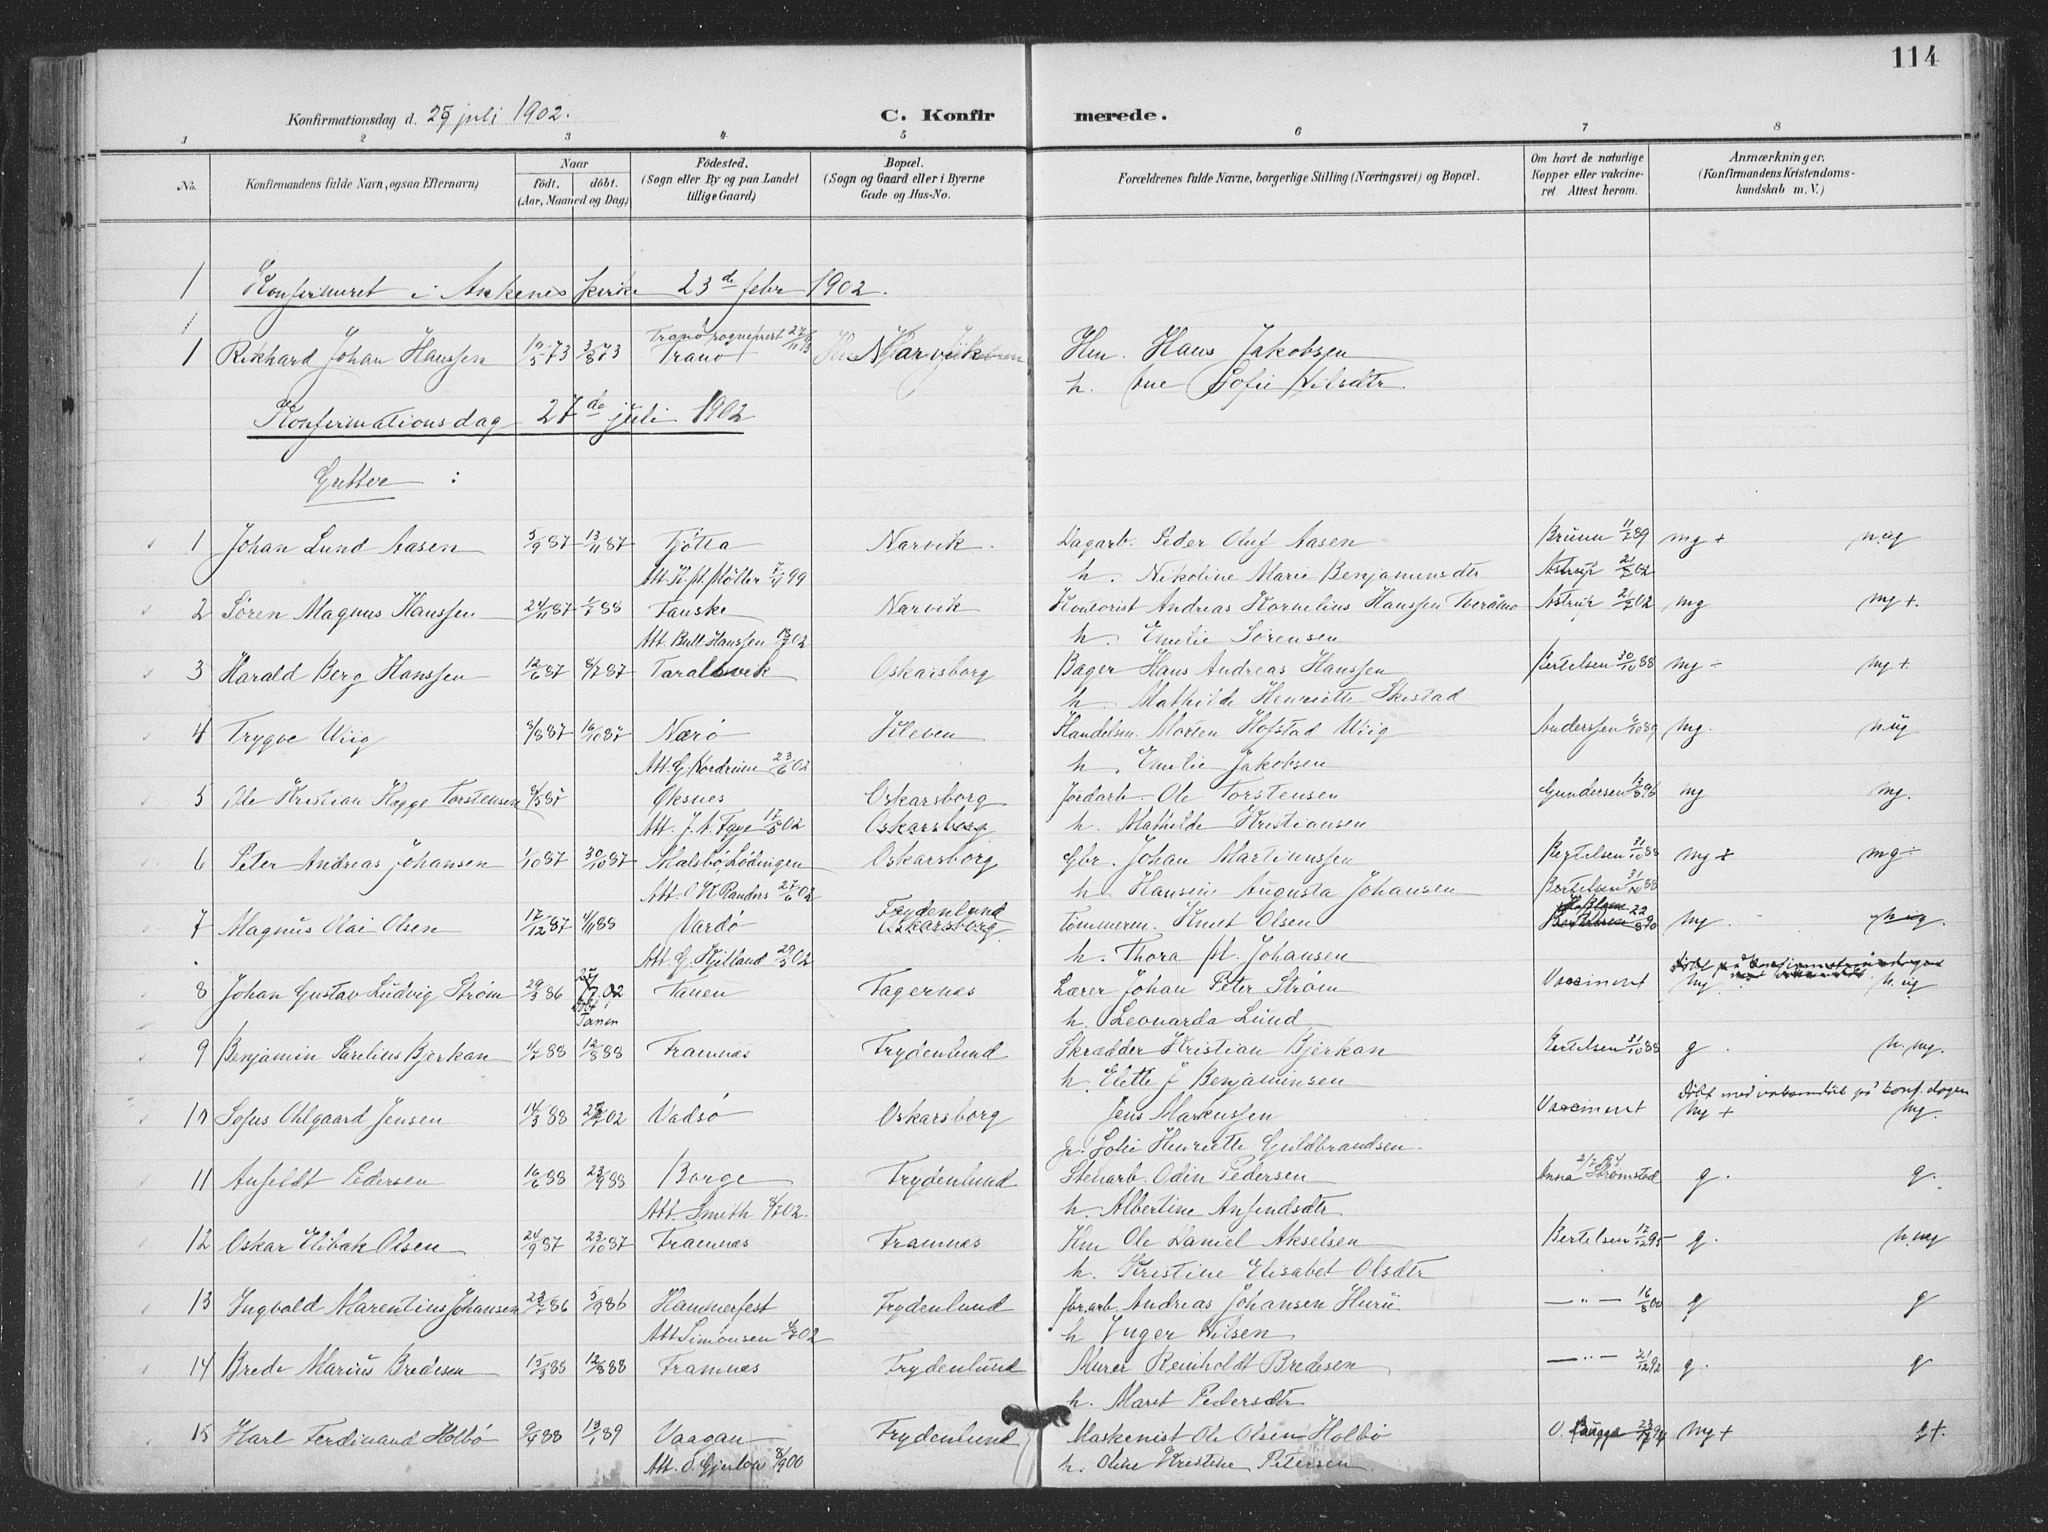 114
Konfirmationsdag d. 29 juli 1902.
C. Konfirmerede.
1 2 3 4 5 6 7 8
No.
Konfirmandens fulde Navn, ogsaa Efternavn)
Naar
födt. döbt.
(Aar, Maaned og Dag)
Födested.
(Sogn eller By og paa Landet
tillige Gaard)
Bopæl.
(Sogn og Gaard eller i Byerne
Gade og Hus-No.
Forældrenes fulde Navne, borgerlige Stilling (Næringsvei) og Bopæl.
Om havt de naturlige
Kopper eller vakcine-
ret Attest herom.
Anmærkninger.
(Konfirmandens Kristendoms-
kundskab m. V.)
1 Konfirmeret i Ankenes kirke 23de febr 1902.
1
1 Rikhard Johan Hanssen 10/5 73 3/8 73 Tranö Narvik Hm. Hans Jakobsen
h. Ane Sofie Nilsdtr.
Konfirmationsdag 27de juli 1902
Gutter :
1 Johan Lund Aasen 5/9 87 13/11 87 Tjötta Narvik. Dagarb. Peder Oluf Aasen Bruun 11/7 89 mg + n.ug
Att. K. M. Möller 7/4 99 h. Nikoline Marie Benjaminsdtr Astrup 21/7 02
2 Sören Magnus Hanssen 24/11 87 1/1 88 Fauske Narvik Kontorist Andreas Kornelius Hanssen Tveråmo Astrup 21/7 02 mg mg +.
Att. Bull Hanssen 02 h. Emilie Sörensen
3 Harald Berg Hanssen 12/6 87 8/7 87 Taralsvik Oskarsborg Bager Hans Andreas Hanssen Bertelsen 30/10 88 mg ÷ mg +
h. Mathilde Henriette Skistad
4 Trygve Wiig 8/8 87 16/10 87 Nærö Kleven Handelsm. Morten Hofstad Wiig Anderssen 89 mg. n.ug
Att. G. Nordrum 23/6 02 h. Emilie Jakobsen
5 Ole Kristian Hegge Torstensen 8/5 87 Öksnes Oskarsborg Jordarb. Ole Torstensen Gundersen 13/8 96 mg mg.
Att. 17/5 02 Oskarsborg h. Mathilde Kristiansen
6 Peter Andreas Johansen 1/10 87 30/10 87 Malsbö, Lödingen Oskarsborg Gbr. Johan Martinussen Bertelsen 31/10 88 mg + mg ÷
Att. O. W. Randers 27/6 02 h. Hansine Augusta Johansen Bertelsen 31/10 88
7 Magnus Olai Olsen 17/12 87 4/11 88 Vardö Frydenlund
Oskarsborg Tömmerm. Knut Olsen 22/8 90 mg. n ug.
Att. G. Kjelland 29/5 02 h. Thora M. Johansen
8 Johan Gustav Ludvig Ström 29/3 86 02 döbt i Tanen Tanen Fagernes Lærer Johan Peter Ström Vaccineret mg n. ug
h. Leonarda Lund
9 Benjamin Parelius Bjerkan 4/7 88 12/8 88 Framnæs Frydenlund Skrædder Kristian Bjerkan Bertelsen 31/10 88 g. n. mg.
h. Elette J Benjaminsen
Döbt med vidsundöbt på konf.dagen
10 Sofus Ohlgaard Jensen 14/3 88 02 Vadsö Oskarsborg Jens Markussen Vaccineret mg + mg.
Sofie Henriette Guldbrandsen.
11 Anfeldt Pedersen 16/6 88 23/9 88 Borge Frydenlund Stenarb. Odin Pedersen Anna Strömstad 2/7 94 g. g.
Att. Smith 8/7 02. h. Albertine Anfindsdtr
12 Oskar Elibak Olsen 24/9 87 23/10 87 Framnæs Framnæs Hm Ole Daniel Akselsen Bertelsen 17/12 95 g. n. mg
h. Kristine Elisabet Olsdtr
13 Ingvald Marentius Johansen 23/7 86 5/9 86 Hammerfest Frydenlund Jor.arb. Andreas Johansen Huru — „ — 16/8 00 g g
Att Simonsen 02 h Inger Nilsen
14 Brede Marius Bredesen 15/5 88 12/8 88 Framnæs Frydenlund Murer Reinholdt Bredesen — „ — 21/12 92 g. g
h. Maret Pedersdtr
15 Karl Ferdinand Holbö 9/9 88 13/1 89 Vaagan Frydenlund Maskenist Ole Olsen Holbö O. Bugge 23/7 94 mg + g +.
Att. O. Gjerlow 8/1 900 h. Oline Kristine Petersen